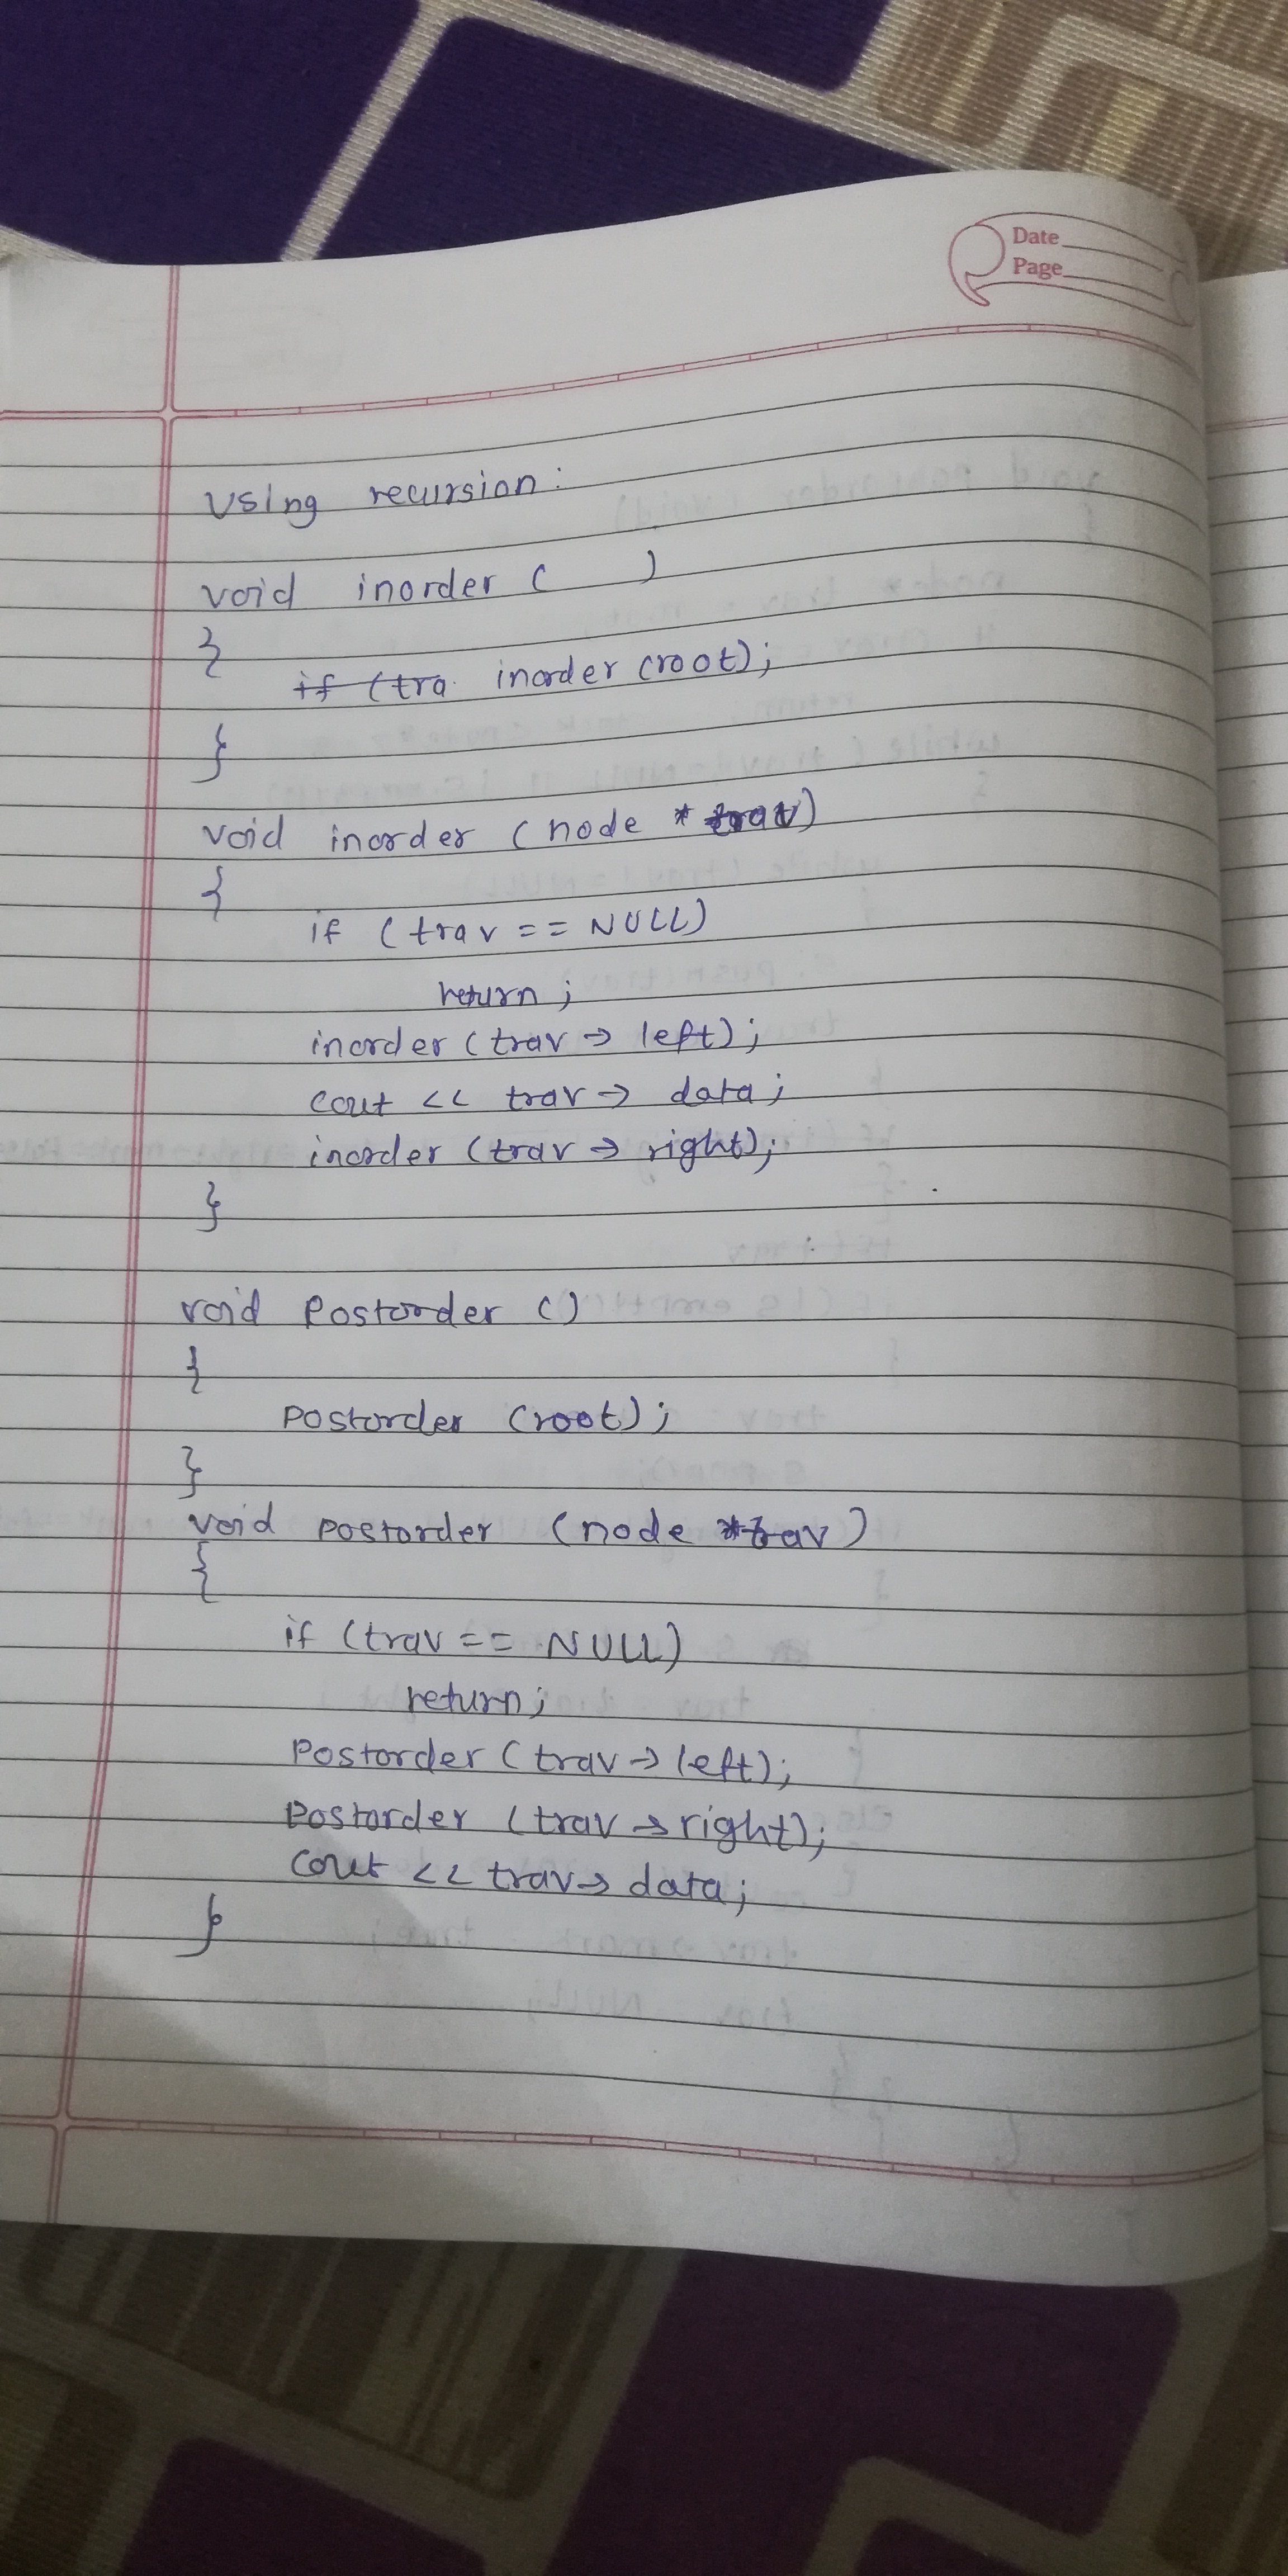 Date
Page
Using recursion:
void inorder ( )
}
if (tra. inorder (root);
}
void inorder (node * trav)
{
if (trav == NULL)
return;
inorder (trav → left);
cout << trav → data;
inorder (trav → right);
}
void Postorder ()
{
Postorder (root);
}
void postorder (node *trav)
{
if (trav == NULL)
return;
Postorder (trav → left);
Postorder (trav → right);
cout << trav → data;
}